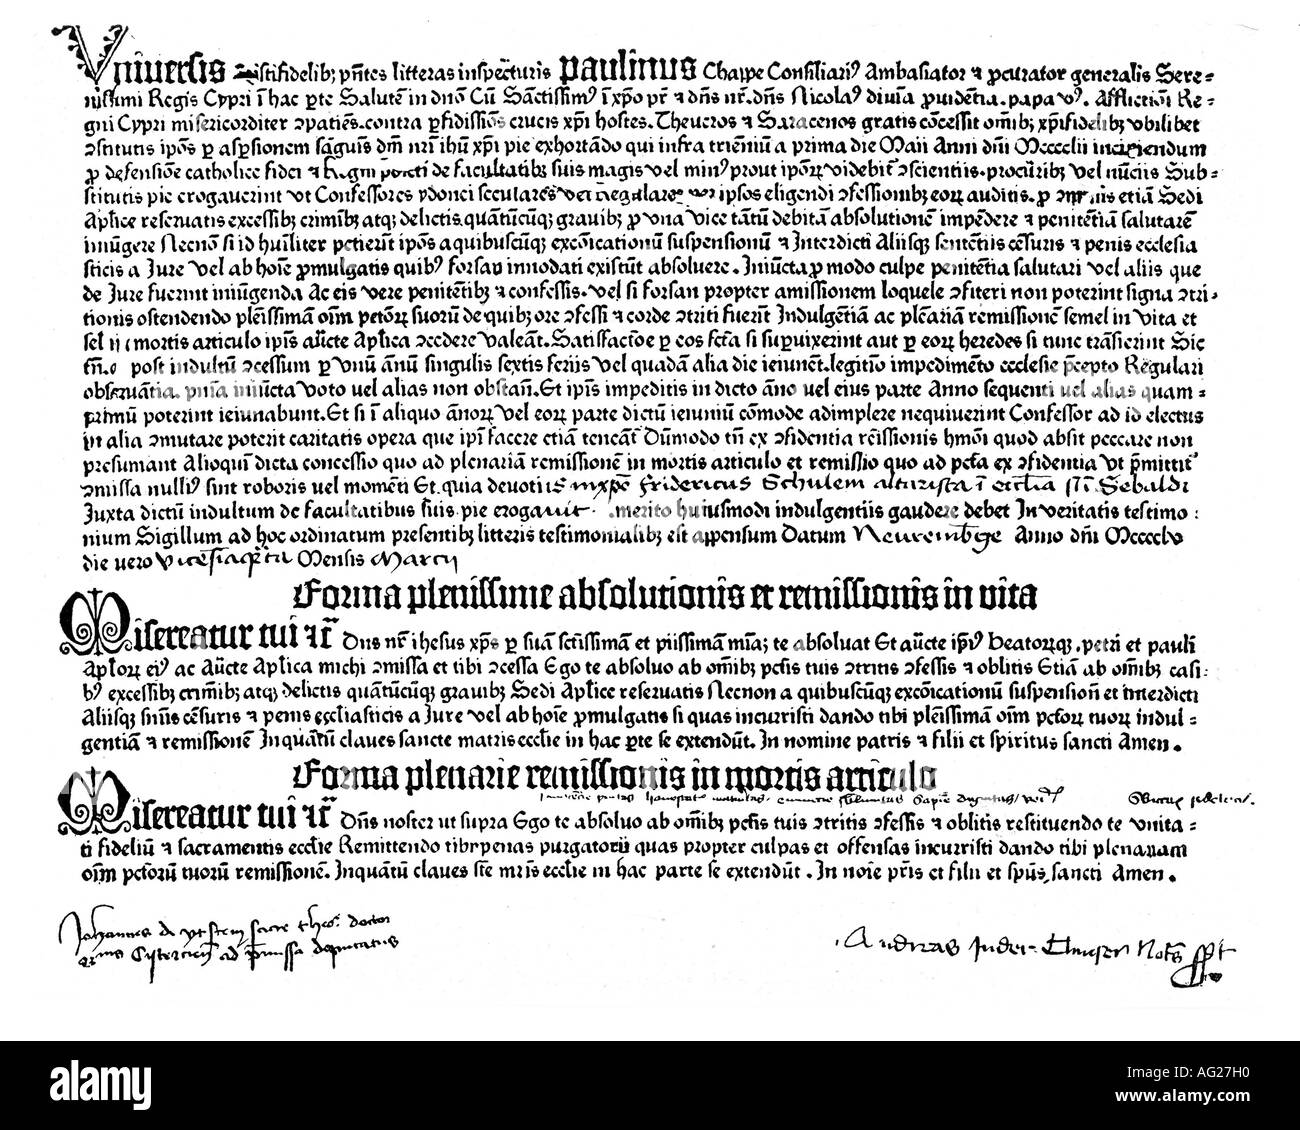 Vniuersis Cristifidelib; pñtes litteras inspecturis Paulinus Chappe Consiliariꝰ Ambasiator ⁊ ꝓcurator generalis Sere-
nissimi Regis Cypri ī hac ꝑte Salutē in dnō Cū Sāctissimꝰ ī xp̄o pr̄ ⁊ dn̄s nr̄. dn̄s Nicolaꝰ diuīa ꝓuidētia. papa vꝰ. Afflictiōi Re-
gni Cypri misericorditer ɔpatiēs. contra ꝑfidissiōs crucis xp̄i hostes. Theucros ⁊ Saracenos gratis cōcessit omīb; xp̄ifidelib; vbilibet
ɔstitutis ip̄os ꝑ asꝑsionem sāguīs dn̄i nr̄i ihū xp̄i pie exhortādo qui infra trienniū a prima die Maii Anni dn̄i Mccccli incipiendum
ꝓ defensiōe catholice fidei ⁊ Regni de facultatib; suis magis vel minꝰ prout ip̄oꝝ videbit ɔscientiis. procurib; vel nūciis Sub-
stitutis pie erogauerint vt Confessores ydonei seculares vel Regulares ipsos eligendi ɔfessionib; eoꝝ auditis. ꝓ etiā Sedi
Aplice reseruatis excessib; crimīb; atq; delictis. quātūcūq; grauib; ꝓ vna vice tātū debitā absolutionē impēdere ⁊ penitētiā salutarē
iniūgere Necnō si id humiliter petierūt ip̄os a quibuscūq; excōicationū suspensionū ⁊ Interdicti Aliisq; sentētiis cēsuris ⁊ penis ecclesia
sticis a Jure vel ab hoīe ꝓmulgatis quibꝰ forsan innodati existūt absoluere. Iniūcta ꝓ modo culpe penitētia salutari vel aliis que
de Jure fuerint iniūgenda Ac eis vere penitētib; ⁊ confessis. vel si forsan propter amissionem loquele ɔfiteri non poterint signa ɔtri-
tionis ostendendo pleīssimā oīm pctōꝝ suorū de quib; ore ɔfessi ⁊ corde ɔtriti fuerīt Indulgētiā ac plenariā remissionē semel in vita et
semel in mortis articulo ip̄is aucte Aplica ɔcedere valeāt. Satisfactōe ꝑ eos fcta si suꝑuixerint aut ꝑ eoꝝ heredes si tunc trāsierint Sic
tn̄ post indultū ɔcessum ꝑ vnū ānū singulis sextis feriis vel quadā alia die ieiunēt. legitīo impedimēto ecclesie pcepto Regulari
obseruātia. pnīa iniūcta voto vel alias non obstān. Et ip̄is impeditis in dicto āno vel eius parte Anno sequenti vel alias quam-
primū poterint ieiunabunt. Et si ī aliquo ānoꝝ vel eoꝝ parte dictū ieiuniū cōmode adimplere nequiuerint Confessor ad id electus
in alia ɔmutare poterit caritatis opera que ip̄i facere etiā teneāt Dūmodo tn̄ ex ɔfidentia remissionis hmōi quod absit peccare non
presumant Alioqui dicta concessio quo ad plenariam remissionē in mortis articulo et remissio quo ad pctā ex ɔfidentia vt pmittit
ɔmissa nulliꝰ sint roboris vel momēti Et quia deuoti in xp̄o fridericus Schulem altarista ī ecclīa sti Sebaldi
Juxta dictū indultum de facultatibus suis pie erogauit. merito huiusmodi indulgentiis gaudere debet In veritatis testimo:
nium Sigillum ad hoc ordinatum presentib; litteris testimonialib; est appensum Datum Neurembge Anno dn̄i Mccccliv
die vero vicesīaqrta Mensis Marcii
Forma plenissime absolutionis et remissionis in vita
Misereatur tui ⁊c̄ Dn̄s nr̄ ihesus xp̄s ꝑ suā sctīssimā et piissimā mīam; te absoluat Et aucte ip̄iꝰ Beatorꝗ. petri et pauli
Apl̄oꝝ eiꝰ ac Aucte Aplica michi ɔmissa et tibi ɔcessa Ego te absoluo ab omīb; pctis tuis ɔtritis ɔfessis ⁊ oblitis Etiā ab omīb; casi-
bꝰ excessib; crimīb; atq; delictis quātūcūq; grauib; Sedi Aplice reseruatis Necnon a quibuscūq; excōicationū suspensionū et interdicti
Aliisq; sniīs cēsuris ⁊ penis eccliasticis a Jure vel ab hoīe ꝓmulgatis si quas incurristi dando tibi plenissimā oīm pctōꝝ tuoꝝ indul-
gentiā ⁊ remissionē Inquātū claues sancte matris ecclie in hac ꝑte se extendūt. In nomine patris ⁊ filii et spiritus sancti Amen.
Forma plenarie remissionis in mortis articulo
Misereatur tui ⁊c̄ Dn̄s noster ut supra Ego te absoluo ab omīb; pctis tuis ɔtritis ɔfessis ⁊ oblitis restituendo te vnita-
ti fideliū ⁊ sacramentis ecclie Remittendo tibi penas purgatorii quas propter culpas et offensas incurristi dando tibi plenariam
oīm pctōrū tuorū remissionē. Inquātū claues ste mris ecclie in hac parte se extendūt. In noīe pris et filii et spūs sancti Amen.
Johannes de ytstein sacre theo. doctor
Cistercien ad pmissa deputatus
Andreas Notꝰ
alamy
Image ID: AG27H0
www.alamy.com